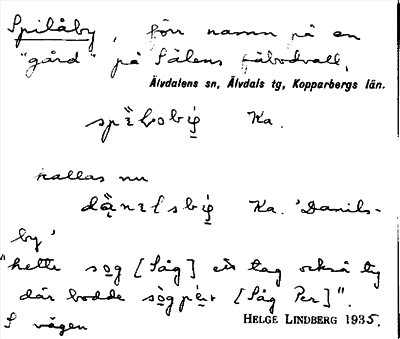 Spilåby, förr namn på en
"gård" på Sälens fäbodvall,
Älvdalens sn, Älvdals tg, Kopparbergs län.
Ka.
kallas nu
Ka. 'Danils-
by'
"hette sog [Såg] ett tag också ty
där bodde [Såg Per]".
S vägen
HELGE LINDBERG 1935.